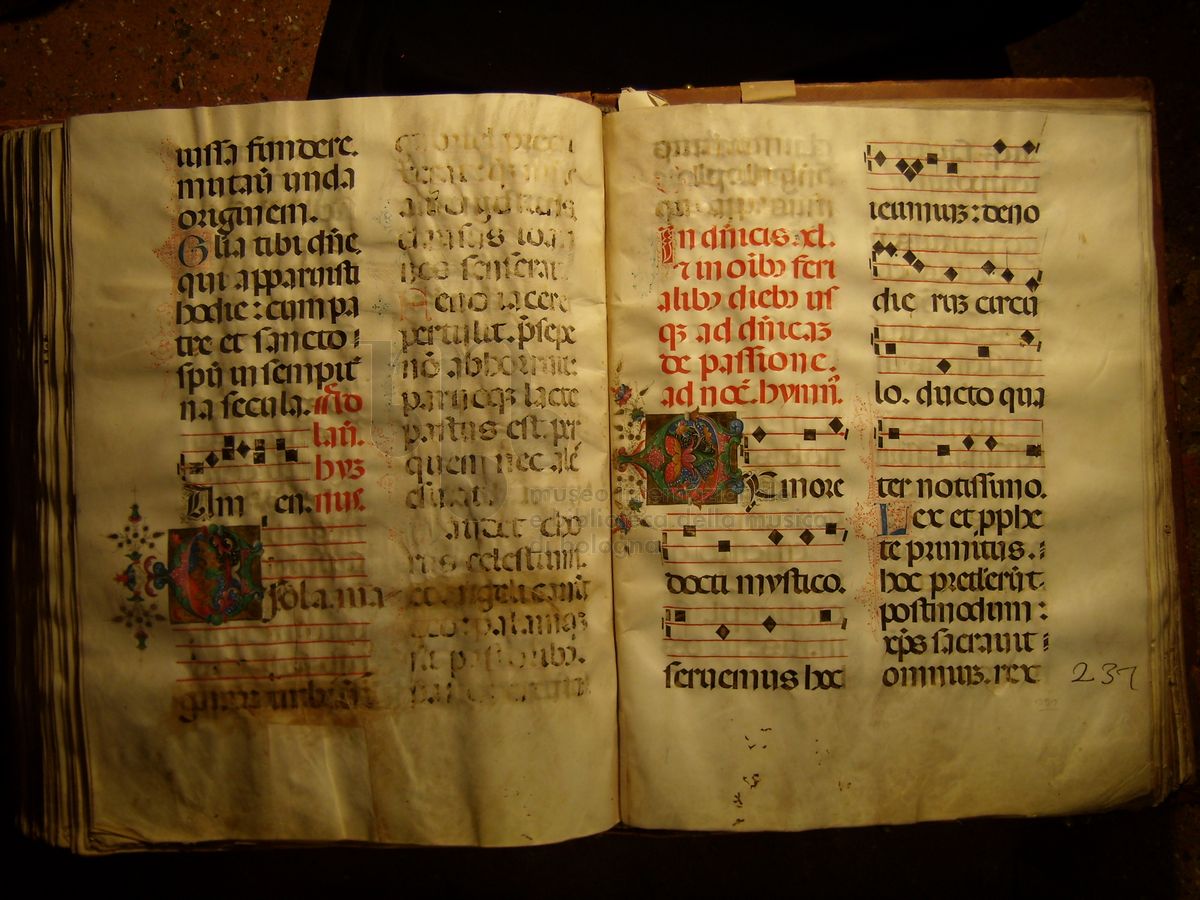 iussa fundere.
mutavit unda
originem.
Glia tibi dñe
qui apparuisti
hodie: cum pa
tre et sancto
spũ in sempit
na secula. Ad
laũ.
hyz
Am en. nus.
sola ma
gnarũ urbiũ
clausus ioan
nes senserat.
Feno iacere
pertulit. p̃sepe
nõ abhorruit:
paruoqz lacte
pastus est. per
quem nec ales
rus celestium.
et angeli canũt
deo: palamqz
fit pastoribus.
In dñicis xl.
⁊ in oĩbꝫ feri
alibꝫ diebꝫ us
qz ad dñicaz
de passione.
ad noct̃. hymn̄.
Ex more
docti mystico.
seruemus hoc
ieiuniuz: deno
die ruz circũ
lo. ducto qua
ter notissimo.
Lex et pphe
te primitus.
hoc pretulerũt
postmodum:
xp̃s sacrauit
omniuz. rex
237
museo internazionale
e biblioteca della musica
di bologna